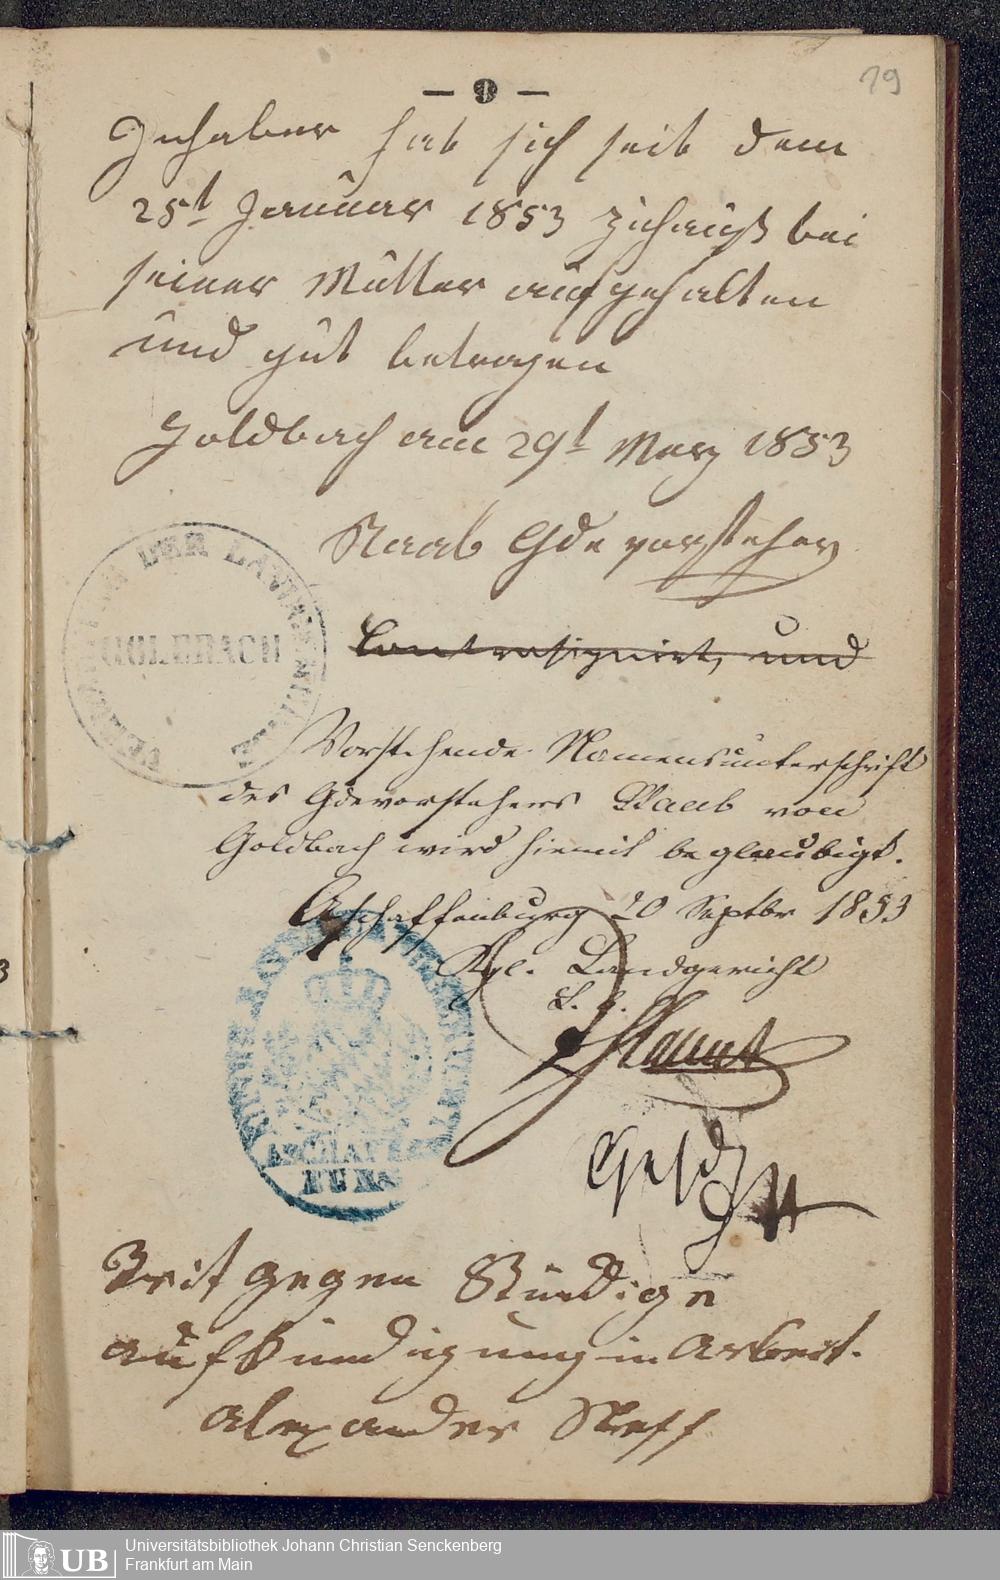 — 9 —
19
Inhaber hat sich seit dem
25t Januar 1853 zuhauß bei
seiner Mutter aufgehalten
und gut betragen
Goldbach am 29t Merz 1853
Raab Gde vorsteher
GOLDBACH
Contrasignirt, und
Vorstehende Namensunterschrift
des Gdevorstehers Raab von
Goldbach wird hiemit beglaubigt.
Aschaffenburg 20 Septbr 1853
Kgl. Landgericht
L. l.
Tritt gegen Kündige
aufkündigung in Arbeit.
Alexander Steff
UB
Universitätsbibliothek Johann Christian Senckenberg
Frankfurt am Main